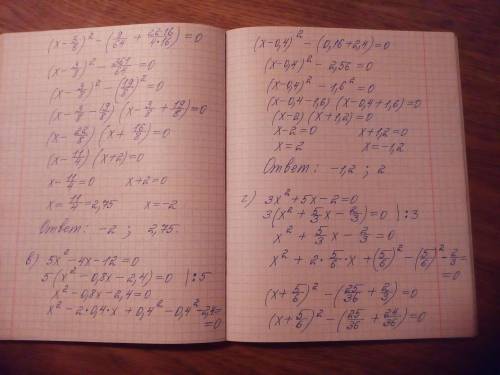 (x-3/8)² - (9/64 + 22·16/4·16) = 0
(x-3/8)² - 361/64 = 0
(x-3/8)² - (19/8)² = 0
(x-3/8-19/8)(x-3/8+19/8) = 0
(x-22/8)(x+16/8) = 0
(x-11/4)(x+2) = 0
x-11/4=0 x+2=0
x=11/4=2,75 x=-2
Ответ: -2 ; 2,75.
в) 5x²-4x-12=0
5(x²-0,8x-2,4)=0 |:5
x²-0,8x-2,4=0
x²-2·0,4·x+0,4²-0,4²-2,4=
=0
(x-0,4)² - (0,16+2,4)=0
(x-0,4)² - 2,56=0
(x-0,4)² - 1,6²=0
(x-0,4-1,6)(x-0,4+1,6)=0
(x-2)(x+1,2)=0
x-2=0 x+1,2=0
x=2 x=-1,2
Ответ: -1,2 ; 2
г) 3x²+5x-2=0
3(x²+5/3x-2/3)=0 |:3
x²+5/3x-2/3=0
x²+2·5/6·x+(5/6)²-(5/6)²-2/3=
=0
(x+5/6)²-(25/36+2/3)=0
(x+5/6)²-(25/36+24/36)=0